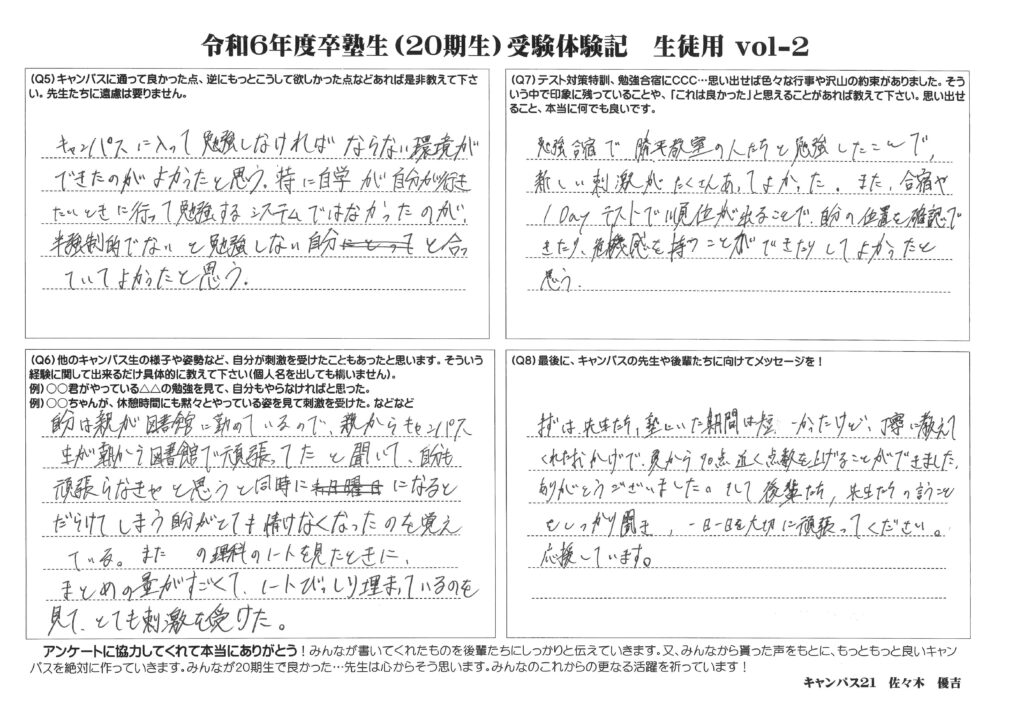 令和6年度卒塾生(20期生)受験体験記　生徒用 vol-2
(Q5)キャンパスに通って良かった点、逆にもっとこうして欲しかった点などあれば是非教えて下さ
い。先生たちに遠慮は要りません。
キャンパスに入って勉強しなければならない環境が
できたのがよかったと思う。特に自学が自分が行き
たいときに行って勉強するシステムではなかったのが、
半強制的でないと勉強しない自分にとってと合っ
ていてよかったと思う。
(Q6)他のキャンパス生の様子や姿勢など、自分が刺激を受けたこともあったと思います。そういう
経験に関して出来るだけ具体的に教えて下さい(個人名を出しても構いません)。
例)○○君がやっている△△の勉強を見て、自分もやらなければと思った。
例)○○ちゃんが、休憩時間にも黙々とやっている姿を見て刺激を受けた。などなど
自分は親が図書館に勤めているので、親からもキャンパス
生が朝から図書館で頑張ってたと聞いて、自分も
頑張らなきゃと思うと同時に になると
だらけてしまう自分がとても情けなくなったのを覚え
ている。また の理科のノートを見たときに、
まとめの量がすごくて、ノートびっしり埋まっているのを
見て、とても刺激を受けた。
(Q7)テスト対策特訓、勉強合宿にCCC…思い出せば色々な行事や沢山の約束がありました。そう
いう中で印象に残っていることや、「これは良かった」と思えることがあれば教えて下さい。思い出せ
ること、本当に何でも良いです。
勉強合宿で 教室の人たちと勉強したことで、
新しい刺激がたくさんあってよかった。また、合宿や
1Dayテストで順位が出ることで、自分の位置を確認で
きたり、危機感を持つことができたりしてよかったと
思う。
(Q8)最後に、キャンパスの先生や後輩たちに向けてメッセージを!
まずは、先生たち、塾にいた期間は短かったけど、丁寧に教えて
くれたおかげで、夏から90点近く点数を上げることができました。
ありがとうございました。そして後輩たち、先生たちの言うこと
をしっかり聞き、一日一日を大切に頑張ってください。
応援しています。
アンケートに協力してくれて本当にありがとう!みんなが書いてくれたものを後輩たちにしっかりと伝えていきます。又、みんなから貰った声をもとに、もっともっと良いキャン
パスを絶対に作っていきます。みんなが20期生で良かった…先生は心からそう思います。みんなのこれからの更なる活躍を祈っています!
キャンパス21　佐々木　優吉